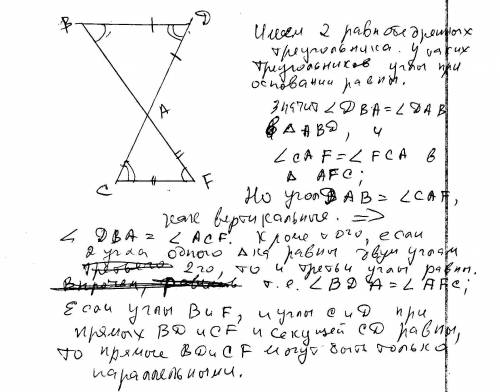 B D
A
C F
Имеем 2 равнобедренных
треугольника. У таких
треугольников углы при
основании равны.
Значит ∠DBA = ∠DAB
в △ ABD, и
∠CAF = ∠FCA в
△ AFC;
Но угол DAB = ∠CAF,
как вертикальные. =>
∠ DBA = ∠ACF. Кроме того, если
2 угла одного △ка равны двум углам
третьего 2го, то и третьи углы равны.
Впрочем, т.е. ∠BDA = ∠AFC;
Если углы B и F, и углы C и D при
прямых BD и CF и секущей CD равны,
то прямые BD и CF могут быть только
параллельными.